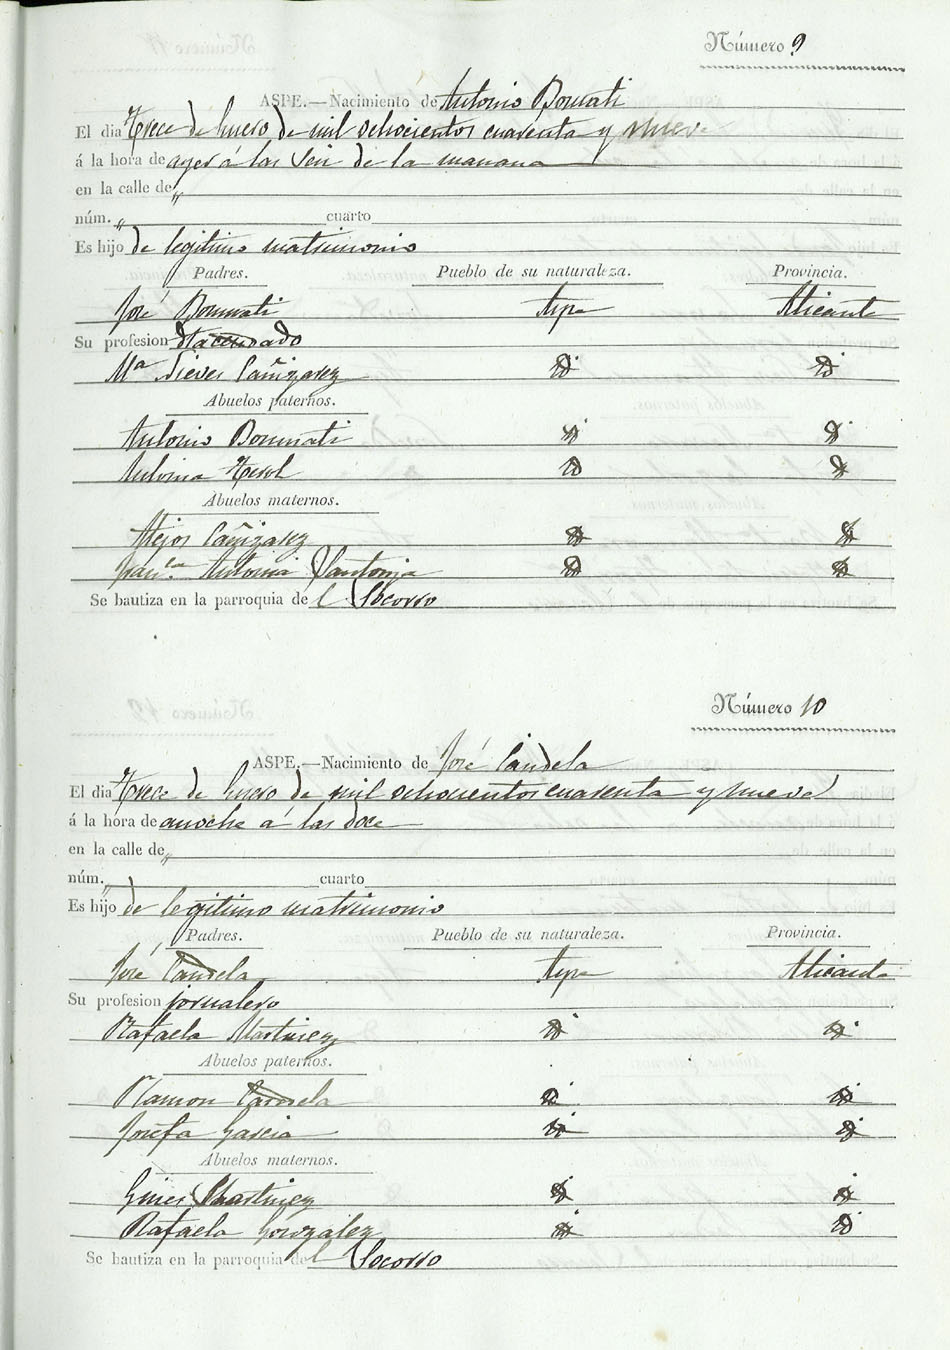 Número 9
ASPE.—Nacimiento de Antonio Bonmati
El dia Trece de Enero de mil ochocientos cuarenta y nueve
á la hora de ayer á las seis de la mañana
en la calle de „
núm. „ cuarto
Es hijo de legitimo matrimonio
Padres. Pueblo de su naturaleza. Provincia.
José Bonmati Aspe Alicante
Su profesion Hacendado
Mª Nieves Cañizarez id id
Abuelos paternos.
Antonio Bonmati id id
Antonia Terol id id
Abuelos maternos.
Cañizarez id id
Antonia Santonja id id
Se bautiza en la parroquia del Socorro
Número 10
ASPE.—Nacimiento de José Candela
El dia Trece de Enero de mil ochocientos cuarenta y nueve
á la hora de anoche a las doce
en la calle de „
núm. „ cuarto
Es hijo de legitimo matrimonio
Padres. Pueblo de su naturaleza. Provincia.
José Candela Aspe Alicante
Su profesion jornalero
Rafaela Martinez id id
Abuelos paternos.
Ramon Candela id id
Josefa Garcia id id
Abuelos maternos.
Gines Martinez id id
Rafaela Gonzalez id id
Se bautiza en la parroquia del Socorro